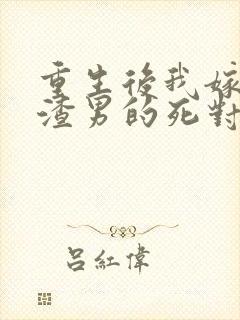 重生後我嫁
渣男的死對
呂紅偉